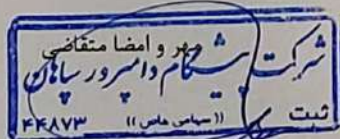 مهر و امضا متقاضی
شرکت پیشگام دامپرور سپاهان
ثبت (( سهامی خاص )) ۴۴۸۷۳